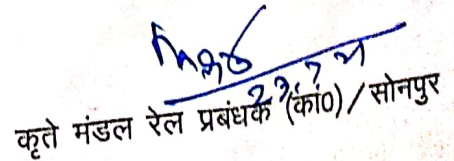 कृते मंडल रेल प्रबंधक (कां0)/सोनपुर